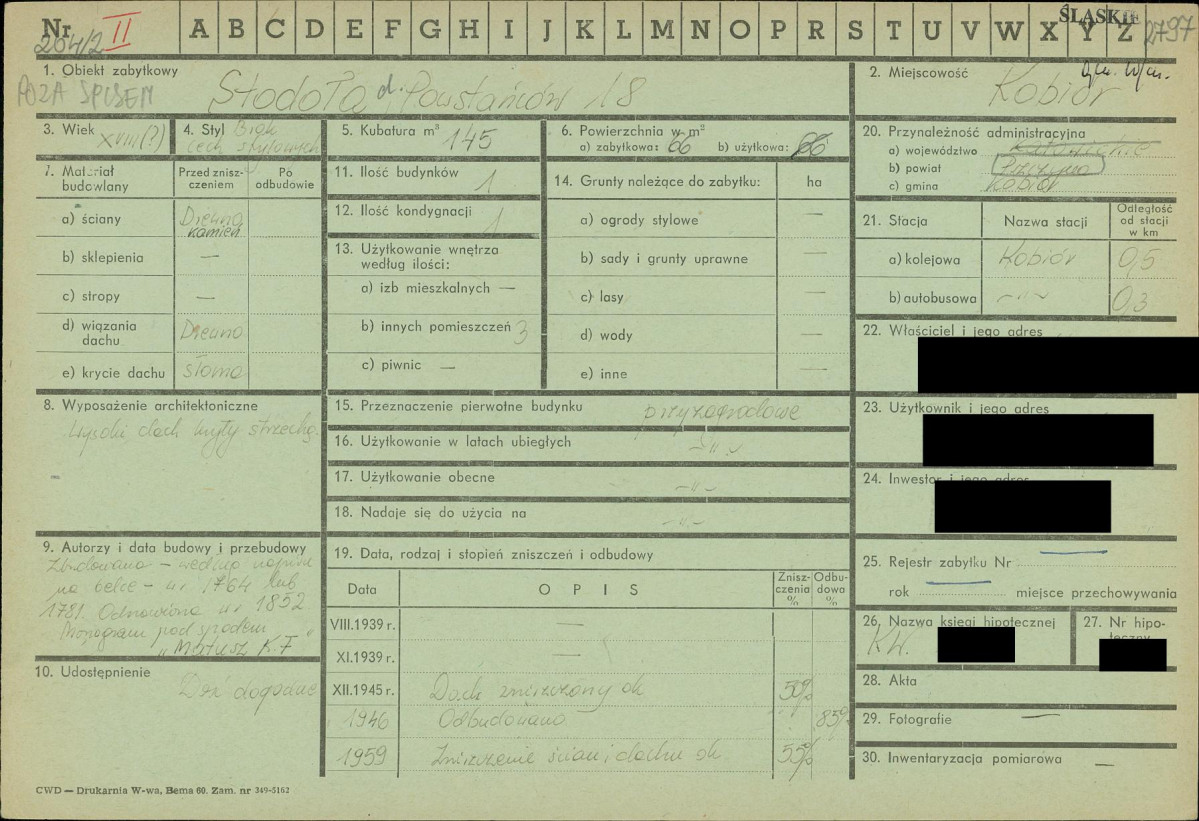 Nr 264/2 II A B C D E F G H I J K L M N O P R S T U V W X Y Z ŚLĄSKIE 2797
POZA SPISEM
1. Obiekt zabytkowy
Stodoła d. Powstańców 18
2. Miejscowość
Kobiór
3. Wiek XVIII (?)
4. Styl Brak
cech stylowych
5. Kubatura m³ 145
6. Powierzchnia w m²
a) zabytkowa: 66 b) użytkowa: 66
20. Przynależność administracyjna
a) województwo Katowickie
b) powiat Pszczyna
c) gmina Kobiór
7. Materiał budowlany
Przed zniszczeniem
Po odbudowie
a) ściany Drewno kamień
b) sklepienia —
c) stropy —
d) wiązania dachu Drewno
e) krycie dachu słoma
11. Ilość budynków 1
12. Ilość kondygnacji 1
13. Użytkowanie wnętrza
według ilości:
a) izb mieszkalnych —
b) innych pomieszczeń 3
c) piwnic —
14. Grunty należące do zabytku: ha
a) ogrody stylowe —
b) sady i grunty uprawne —
c) lasy —
d) wody —
e) inne —
21. Stacja Nazwa stacji Odległość od stacji w km
a) kolejowa Kobiór 0,5
b) autobusowa -„- 0,3
22. Właściciel i jego adres
8. Wyposażenie architektoniczne
Wysoki dach kryty strzechą.
15. Przeznaczenie pierwotne budynku przyzagrodowe
16. Użytkowanie w latach ubiegłych -„-
17. Użytkowanie obecne -„-
18. Nadaje się do użycia na -„-
23. Użytkownik i jego adres
24. Inwestor i jego adres
9. Autorzy i data budowy i przebudowy
Zbudowano – według napisu
na belce – w r 1764 lub
1781. Odnowiona w r 1852
Monogram pod spodem
„Mateusz K.F"
19. Data, rodzaj i stopień zniszczeń i odbudowy
Data OPIS Zniszczenia % Odbudowa %
VIII.1939 r. —
XI.1939 r. —
XII.1945 r. Dach zniszczony ok 50%
1946 Odbudowano 85%
1959 Zniszczenie ścian i dachu ok 55%
25. Rejestr zabytku Nr —
rok — miejsce przechowywania
26. Nazwa księgi hipotecznej
KW.
27. Nr hipoteczny
10. Udostępnienie
28. Akta
29. Fotografie —
30. Inwentaryzacja pomiarowa —
CWD — Drukarnia W-wa, Bema 60. Zam. nr 349-5162